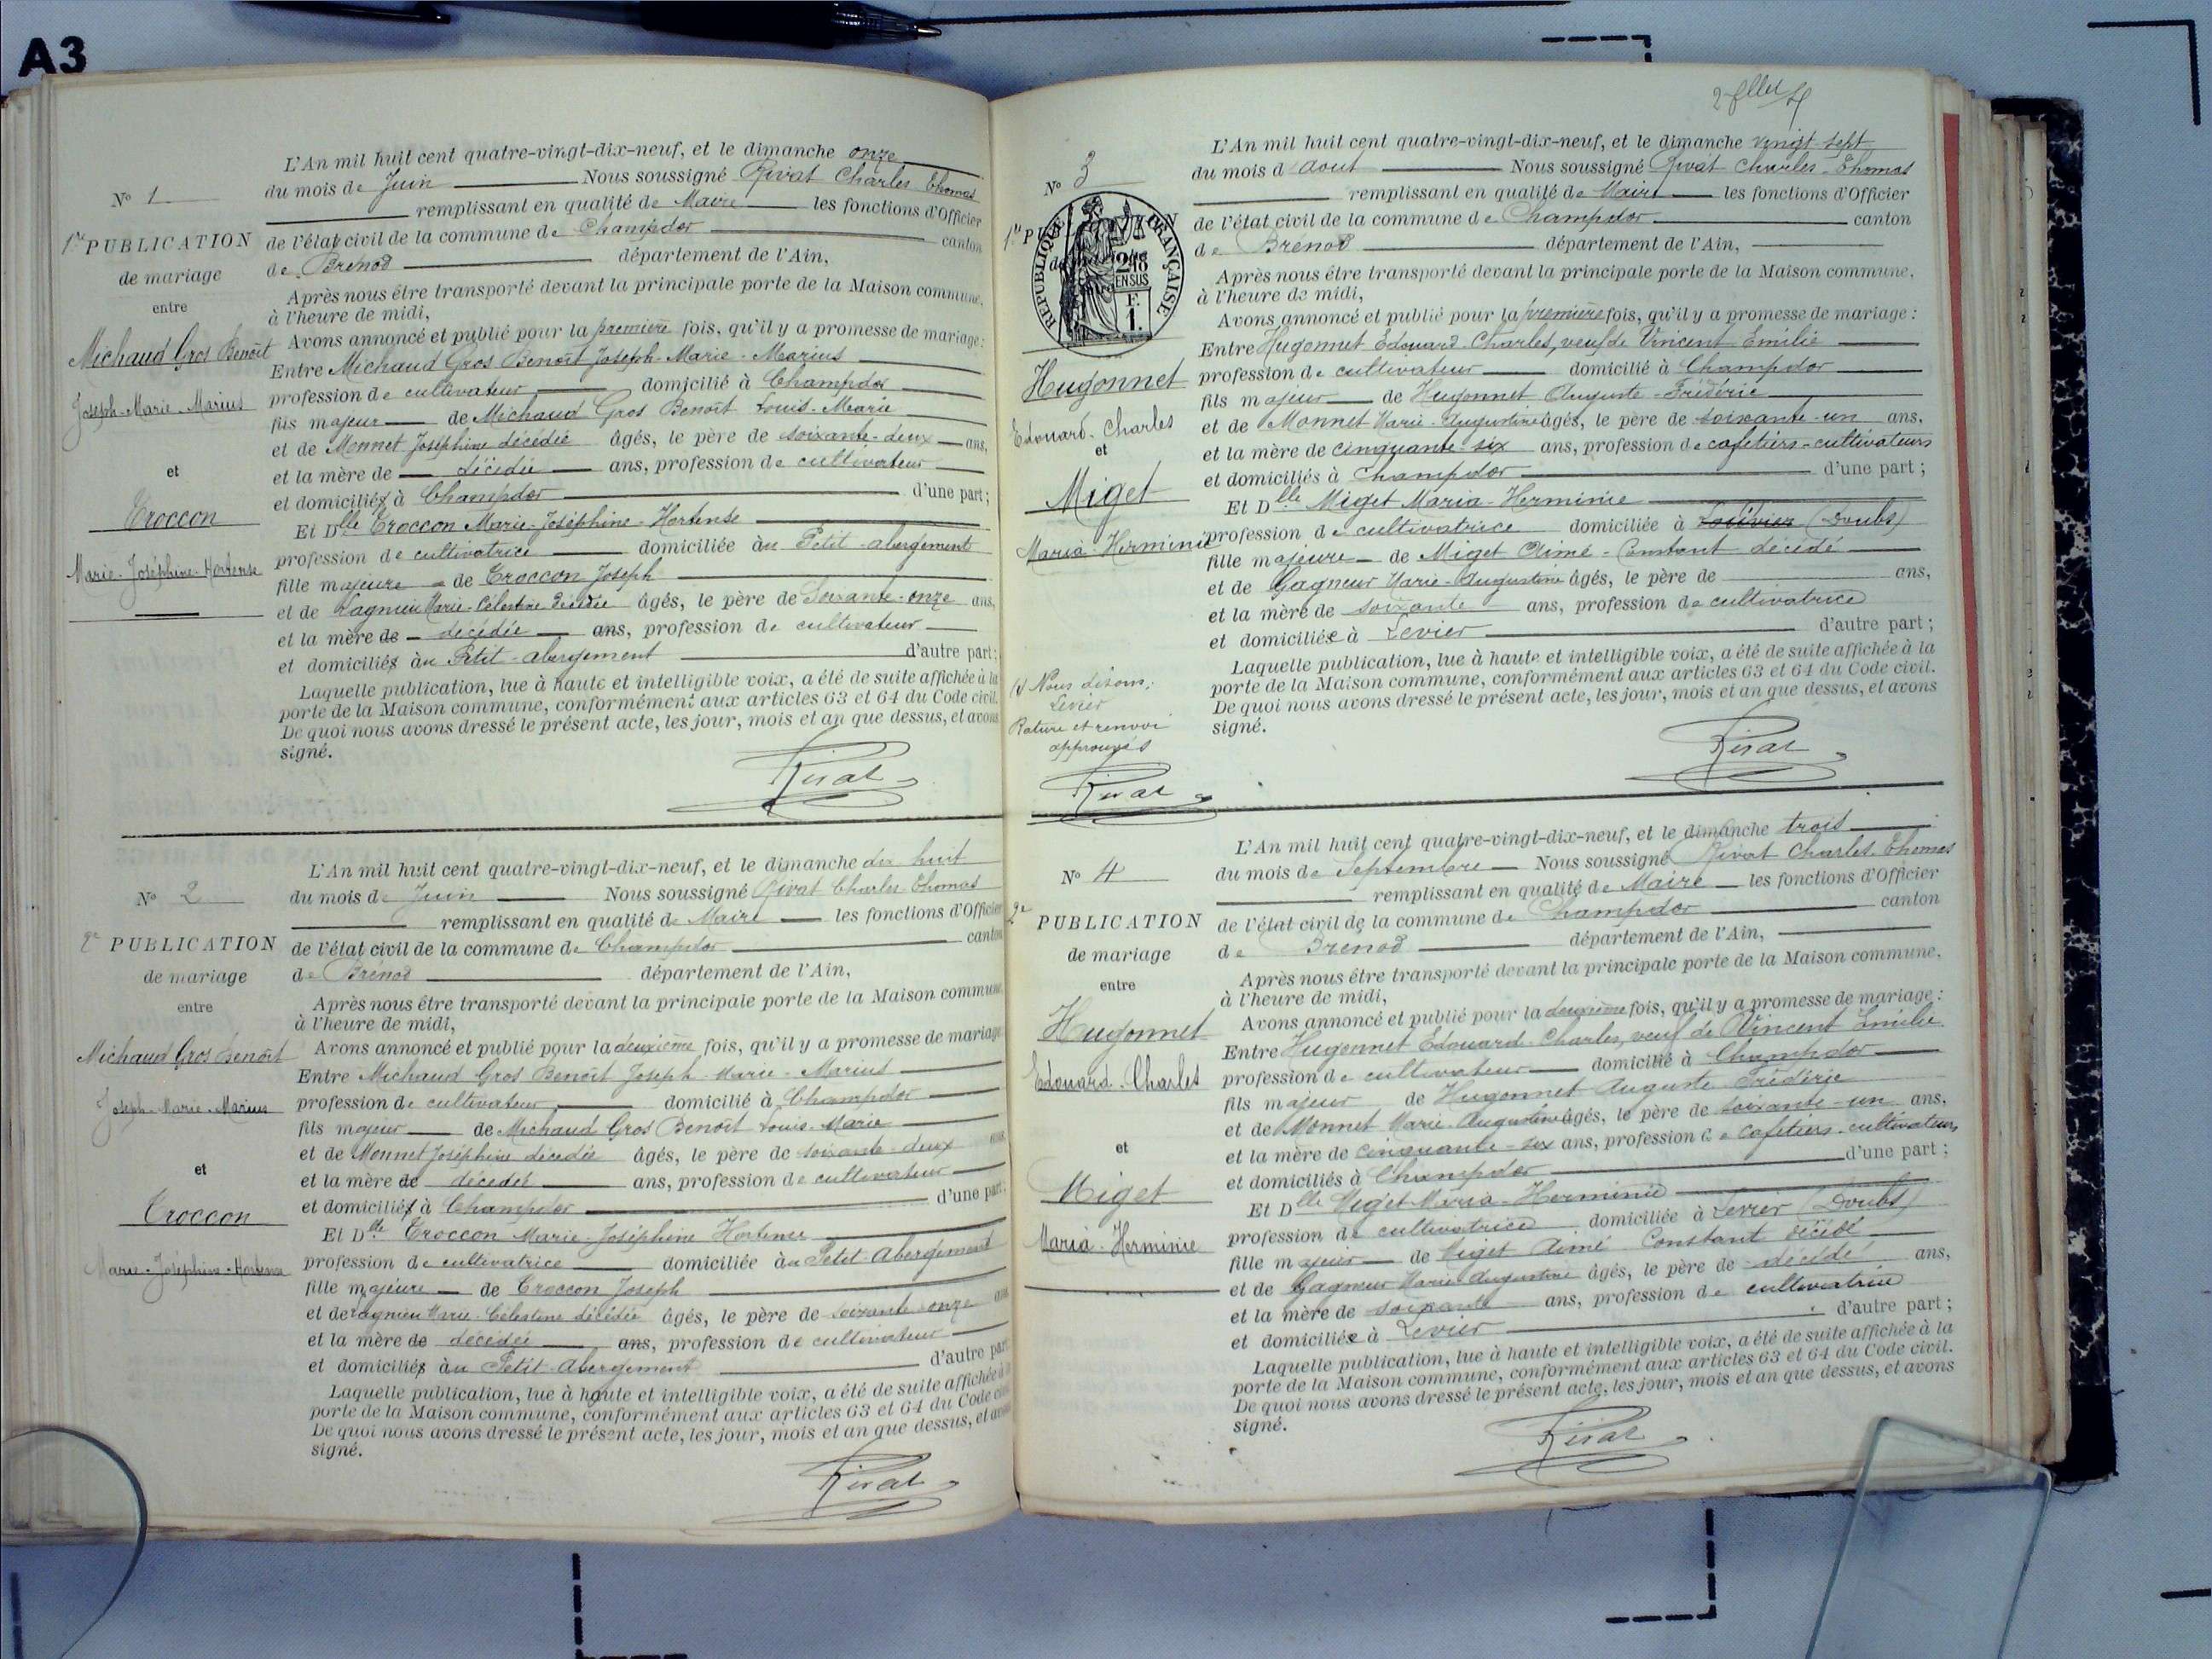 A3
N° 1
1re PUBLICATION
de mariage
entre
Michaud Gros Benoît
Joseph-Marie-Marius
et
Troccon
Marie-Joséphine-Hortense
L'An mil huit cent quatre-vingt-dix-neuf, et le dimanche onze
du mois de Juin Nous soussigné Rivat Charles Thomas
remplissant en qualité de Maire les fonctions d'Officier
de l'état civil de la commune de Champdor canton
de Brénod département de l'Ain,
Après nous être transporté devant la principale porte de la Maison commune,
à l'heure de midi,
Avons annoncé et publié pour la première fois, qu'il y a promesse de mariage:
Entre Michaud Gros Benoît Joseph-Marie-Marius
profession de cultivateur domicilié à Champdor
fils majeur de Michaud Gros Benoît Louis-Marie
et de Monnet Joséphine décédée âgés, le père de soixante-deux ans,
et la mère de décédée ans, profession de cultivateur
et domiciliés à Champdor d'une part;
Et Dlle Troccon Marie-Joséphine-Hortense
profession de cultivatrice domiciliée au Petit-abergement
fille majeure de Troccon Joseph
et de Lagnieu Marie-Célestine décédée âgés, le père de Soixante-onze ans,
et la mère de décédée ans, profession de cultivateur
et domiciliés au Petit-abergement d'autre part;
Laquelle publication, lue à haute et intelligible voix, a été de suite affichée à la
porte de la Maison commune, conformément aux articles 63 et 64 du Code civil.
De quoi nous avons dressé le présent acte, les jour, mois et an que dessus, et avons
signé.
Rivat
N° 2
2e PUBLICATION
de mariage
entre
Michaud Gros Benoît
Joseph-Marie-Marius
et
Troccon
Marie-Joséphine-Hortense
L'An mil huit cent quatre-vingt-dix-neuf, et le dimanche dix huit
du mois de Juin Nous soussigné Rivat Charles Thomas
remplissant en qualité de Maire les fonctions d'Officier
de l'état civil de la commune de Champdor canton
de Brénod département de l'Ain,
Après nous être transporté devant la principale porte de la Maison commune
à l'heure de midi,
Avons annoncé et publié pour la deuxième fois, qu'il y a promesse de mariage
Entre Michaud Gros Benoît Joseph-Marie-Marius
profession de cultivateur domicilié à Champdor
fils majeur de Michaud Gros Benoît Louis-Marie
et de Monnet Joséphine décédée âgés, le père de soixante-deux ans
et la mère de décédée ans, profession de cultivateur
et domiciliés à Champdor d'une part;
Et Dlle Troccon Marie-Joséphine
profession de cultivatrice domiciliée au Petit-Abergement
fille majeure de Troccon Joseph
et de Lagnieu Marie-Célestine décédée âgés, le père de soixante-onze ans
et la mère de décédée ans, profession de cultivateur
et domiciliés au Petit-Abergement d'autre part
Laquelle publication, lue à haute et intelligible voix, a été de suite affichée à la
porte de la Maison commune, conformément aux articles 63 et 64 du Code civil
De quoi nous avons dressé le présent acte, les jour, mois et an que dessus, et avons
signé.
Rivat
N° 3
1re
RÉPUBLIQUE FRANÇAISE
2/10 EN SUS
F.
1.
Hugonnet
Edouard-Charles
et
Miget
Maria-Herminie
Nous disons:
Levier
Rature et renvoi
approuvés
Rivat
L'An mil huit cent quatre-vingt-dix-neuf, et le dimanche vingt-sept
du mois d'Aout Nous soussigné Rivat Charles-Thomas
remplissant en qualité de Maire les fonctions d'Officier
de l'état civil de la commune de Champdor canton
de Brenod département de l'Ain,
Après nous être transporté devant la principale porte de la Maison commune,
à l'heure de midi,
Avons annoncé et publié pour la première fois, qu'il y a promesse de mariage:
Entre Hugonnet Edouard-Charles, veuf de Vincent Emilie
profession de cultivateur domicilié à Champdor
fils majeur de Hugonnet Auguste-Frédéric
et de Monnet Marie-Augustine âgés, le père de soixante-un ans,
et la mère de cinquante-six ans, profession de cafetiers-cultivateurs
et domiciliés à Champdor d'une part;
Et Dlle Miget Maria-Herminie
profession de cultivatrice domiciliée à (Doubs)
fille majeure de Miget Aimé-Constant décédé
et de Gagneur Marie-Augustine âgés, le père de ans,
et la mère de soixante ans, profession de cultivatrice
et domiciliée à Levier d'autre part;
Laquelle publication, lue à haute et intelligible voix, a été de suite affichée à la
porte de la Maison commune, conformément aux articles 63 et 64 du Code civil.
De quoi nous avons dressé le présent acte, les jour, mois et an que dessus, et avons
signé.
Rivat
N° 4
2e PUBLICATION
de mariage
entre
Hugonnet
Edouard-Charles
et
Miget
Maria-Herminie
L'An mil huit cent quatre-vingt-dix-neuf, et le dimanche trois
du mois de Septembre Nous soussigné Rivat Charles-Thomas
remplissant en qualité de Maire les fonctions d'Officier
de l'état civil de la commune de Champdor canton
de Brenod département de l'Ain,
Après nous être transporté devant la principale porte de la Maison commune,
à l'heure de midi,
Avons annoncé et publié pour la deuxième fois, qu'il y a promesse de mariage:
Entre Hugonnet Edouard-Charles, veuf de Vincent Emilie
profession de cultivateur domicilié à Champdor
fils majeur de Hugonnet Auguste Frédéric
et de Monnet Marie-Augustine âgés, le père de soixante-un ans,
et la mère de cinquante-six ans, profession de cafetiers-cultivateurs
et domiciliés à Champdor d'une part;
Et Dlle Miget Maria-Herminie
profession de cultivatrice domiciliée à Levier (Doubs)
fille majeure de Miget Aimé Constant décédé
et de Gagneur Marie-Augustine âgés, le père de décédé ans,
et la mère de soixante ans, profession de cultivatrice
et domiciliée à Levier d'autre part;
Laquelle publication, lue à haute et intelligible voix, a été de suite affichée à la
porte de la Maison commune, conformément aux articles 63 et 64 du Code civil.
De quoi nous avons dressé le présent acte, les jour, mois et an que dessus, et avons
signé.
Rivat